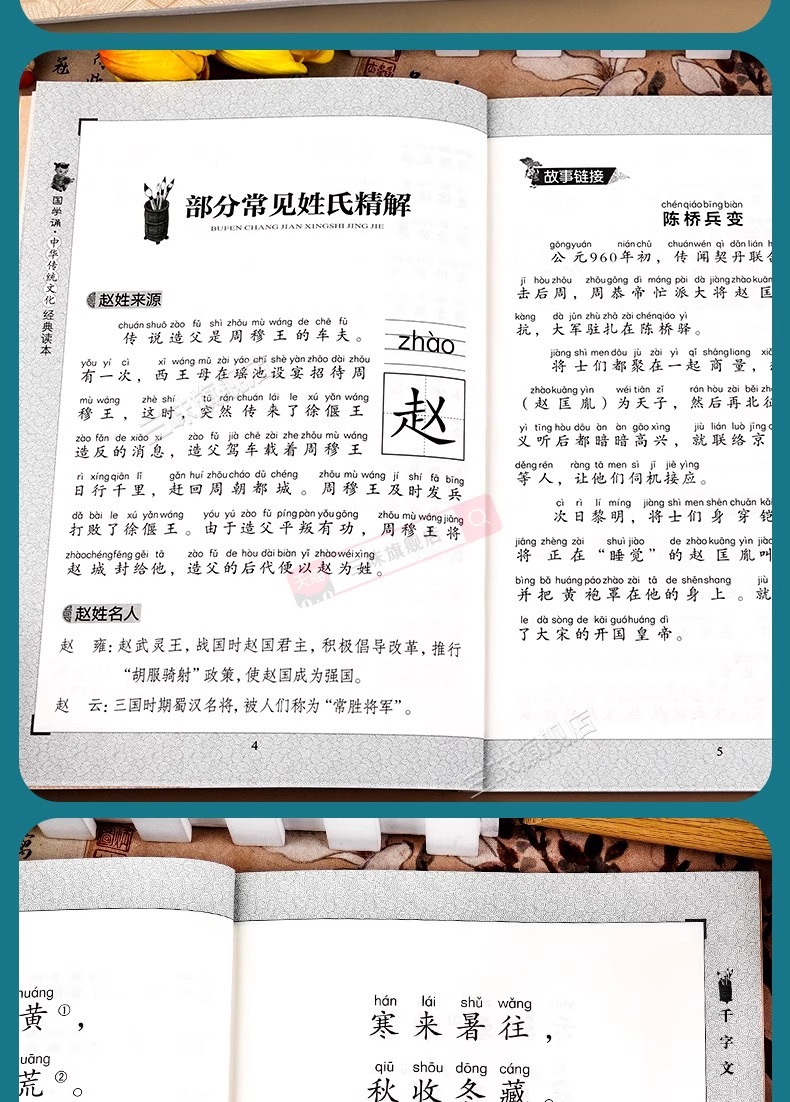 国学诵·中华传统文化经典读本
部分常见姓氏精解
BUFEN CHANG JIAN XINGSHI JING JIE
赵姓来源
chuán shuō zào fǔ shì zhōu mù wáng de chē fū
传说造父是周穆王的车夫。
zhào
赵
yǒu yí cì xī wáng mǔ zài yáo chí shè yàn zhāo dài zhōu
有一次，西王母在瑶池设宴招待周
mù wáng zhè shí tū rán chuán lái le xú yǎn wáng
穆王，这时，突然传来了徐偃王
zào fǎn de xiāo xi zào fǔ jià chē zài zhe zhōu mù wáng
造反的消息，造父驾车载着周穆王
rì xíng qiān lǐ gǎn huí zhōu cháo dū chéng zhōu mù wáng jí shí fā bīng
日行千里，赶回周朝都城。周穆王及时发兵
dǎ bài le xú yǎn wáng yóu yú zào fǔ píng pàn yǒu gōng zhōu mù wáng jiāng
打败了徐偃王。由于造父平叛有功，周穆王将
zhào chéng fēng gěi tā zào fǔ de hòu dài biàn yǐ zhào wéi xìng
赵城封给他，造父的后代便以赵为姓。
赵姓名人
赵 雍：赵武灵王，战国时赵国君主，积极倡导改革，推行
“胡服骑射”政策，使赵国成为强国。
赵 云：三国时期蜀汉名将，被人们称为“常胜将军”。
4
故事链接
chén qiáo bīng biàn
陈桥兵变
gōng yuán nián chū chuán wén qì dān lián h
公元960年初，传闻契丹联合
jī hòu zhōu zhōu gōng dì máng pài dà jiàng zhào kuāng
击后周，周恭帝忙派大将赵匡
kàng dà jūn zhù zhā zài chén qiáo yì
抗，大军驻扎在陈桥驿。
jiàng shì men dōu jù zài yì qǐ shāng liang
将士们都聚在一起商量，
zhào kuāng yìn wéi tiān zǐ rán hòu zài běi
（赵匡胤）为天子，然后再北征
yì tīng hòu dōu àn àn gāo xìng jiù lián luò jīng
义听后都暗暗高兴，就联络京
děng rén ràng tā men sì jī jiē yìng
等人，让他们伺机接应。
cì rì lí míng jiàng shì men shēn chuān kǎi
次日黎明，将士们身穿铠
jiāng zhèng zài shuì jiào de zhào kuāng yìn jiào
将正在“睡觉”的赵匡胤叫
bìng bǎ huáng páo zhào zài tā de shēn shang jiù
并把黄袍罩在他的身上。就
le dà sòng de kāi guó huáng dì
了大宋的开国皇帝。
5
huáng
黄①，
huāng
荒②。
hán lái shǔ wǎng
寒来暑往，
qiū shōu dōng cáng
秋收冬藏。
千字文